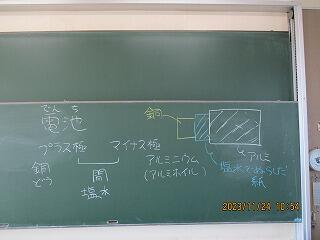 でんち
電池
プラス極 マイナス極
銅
どう
間
塩水
アルミニウム
(アルミホイル)
銅
アルミ
塩水でぬらした
紙
2023/11/24 10:54